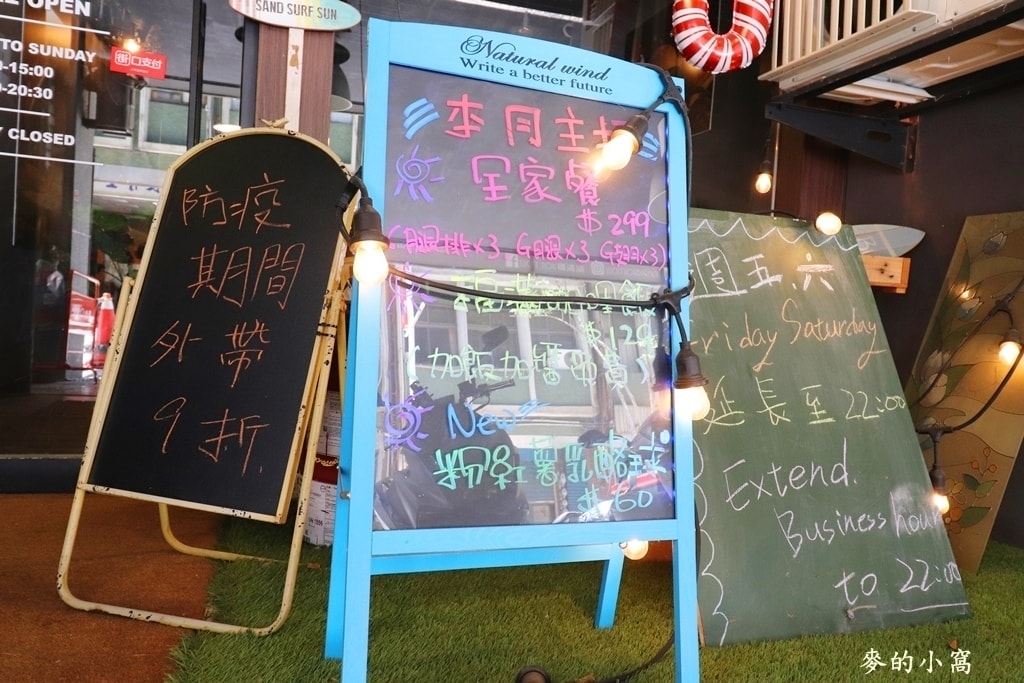 SAND SURF SUN
OPEN
TO SUNDAY
-15:00
-20:30
CLOSED
街口支付
防疫
期間
外帶
9折
Natural wind
Write a better future
本月主
全家餐
$299
(腿排x3 G腿x3 G翅x3)
$12
(加飯加醬免費)
New
粉紅薯乳酪球
$60
週五.六
Friday Saturday
延長至22:00
Extend.
Business hour
to 22:00
麥的小窩